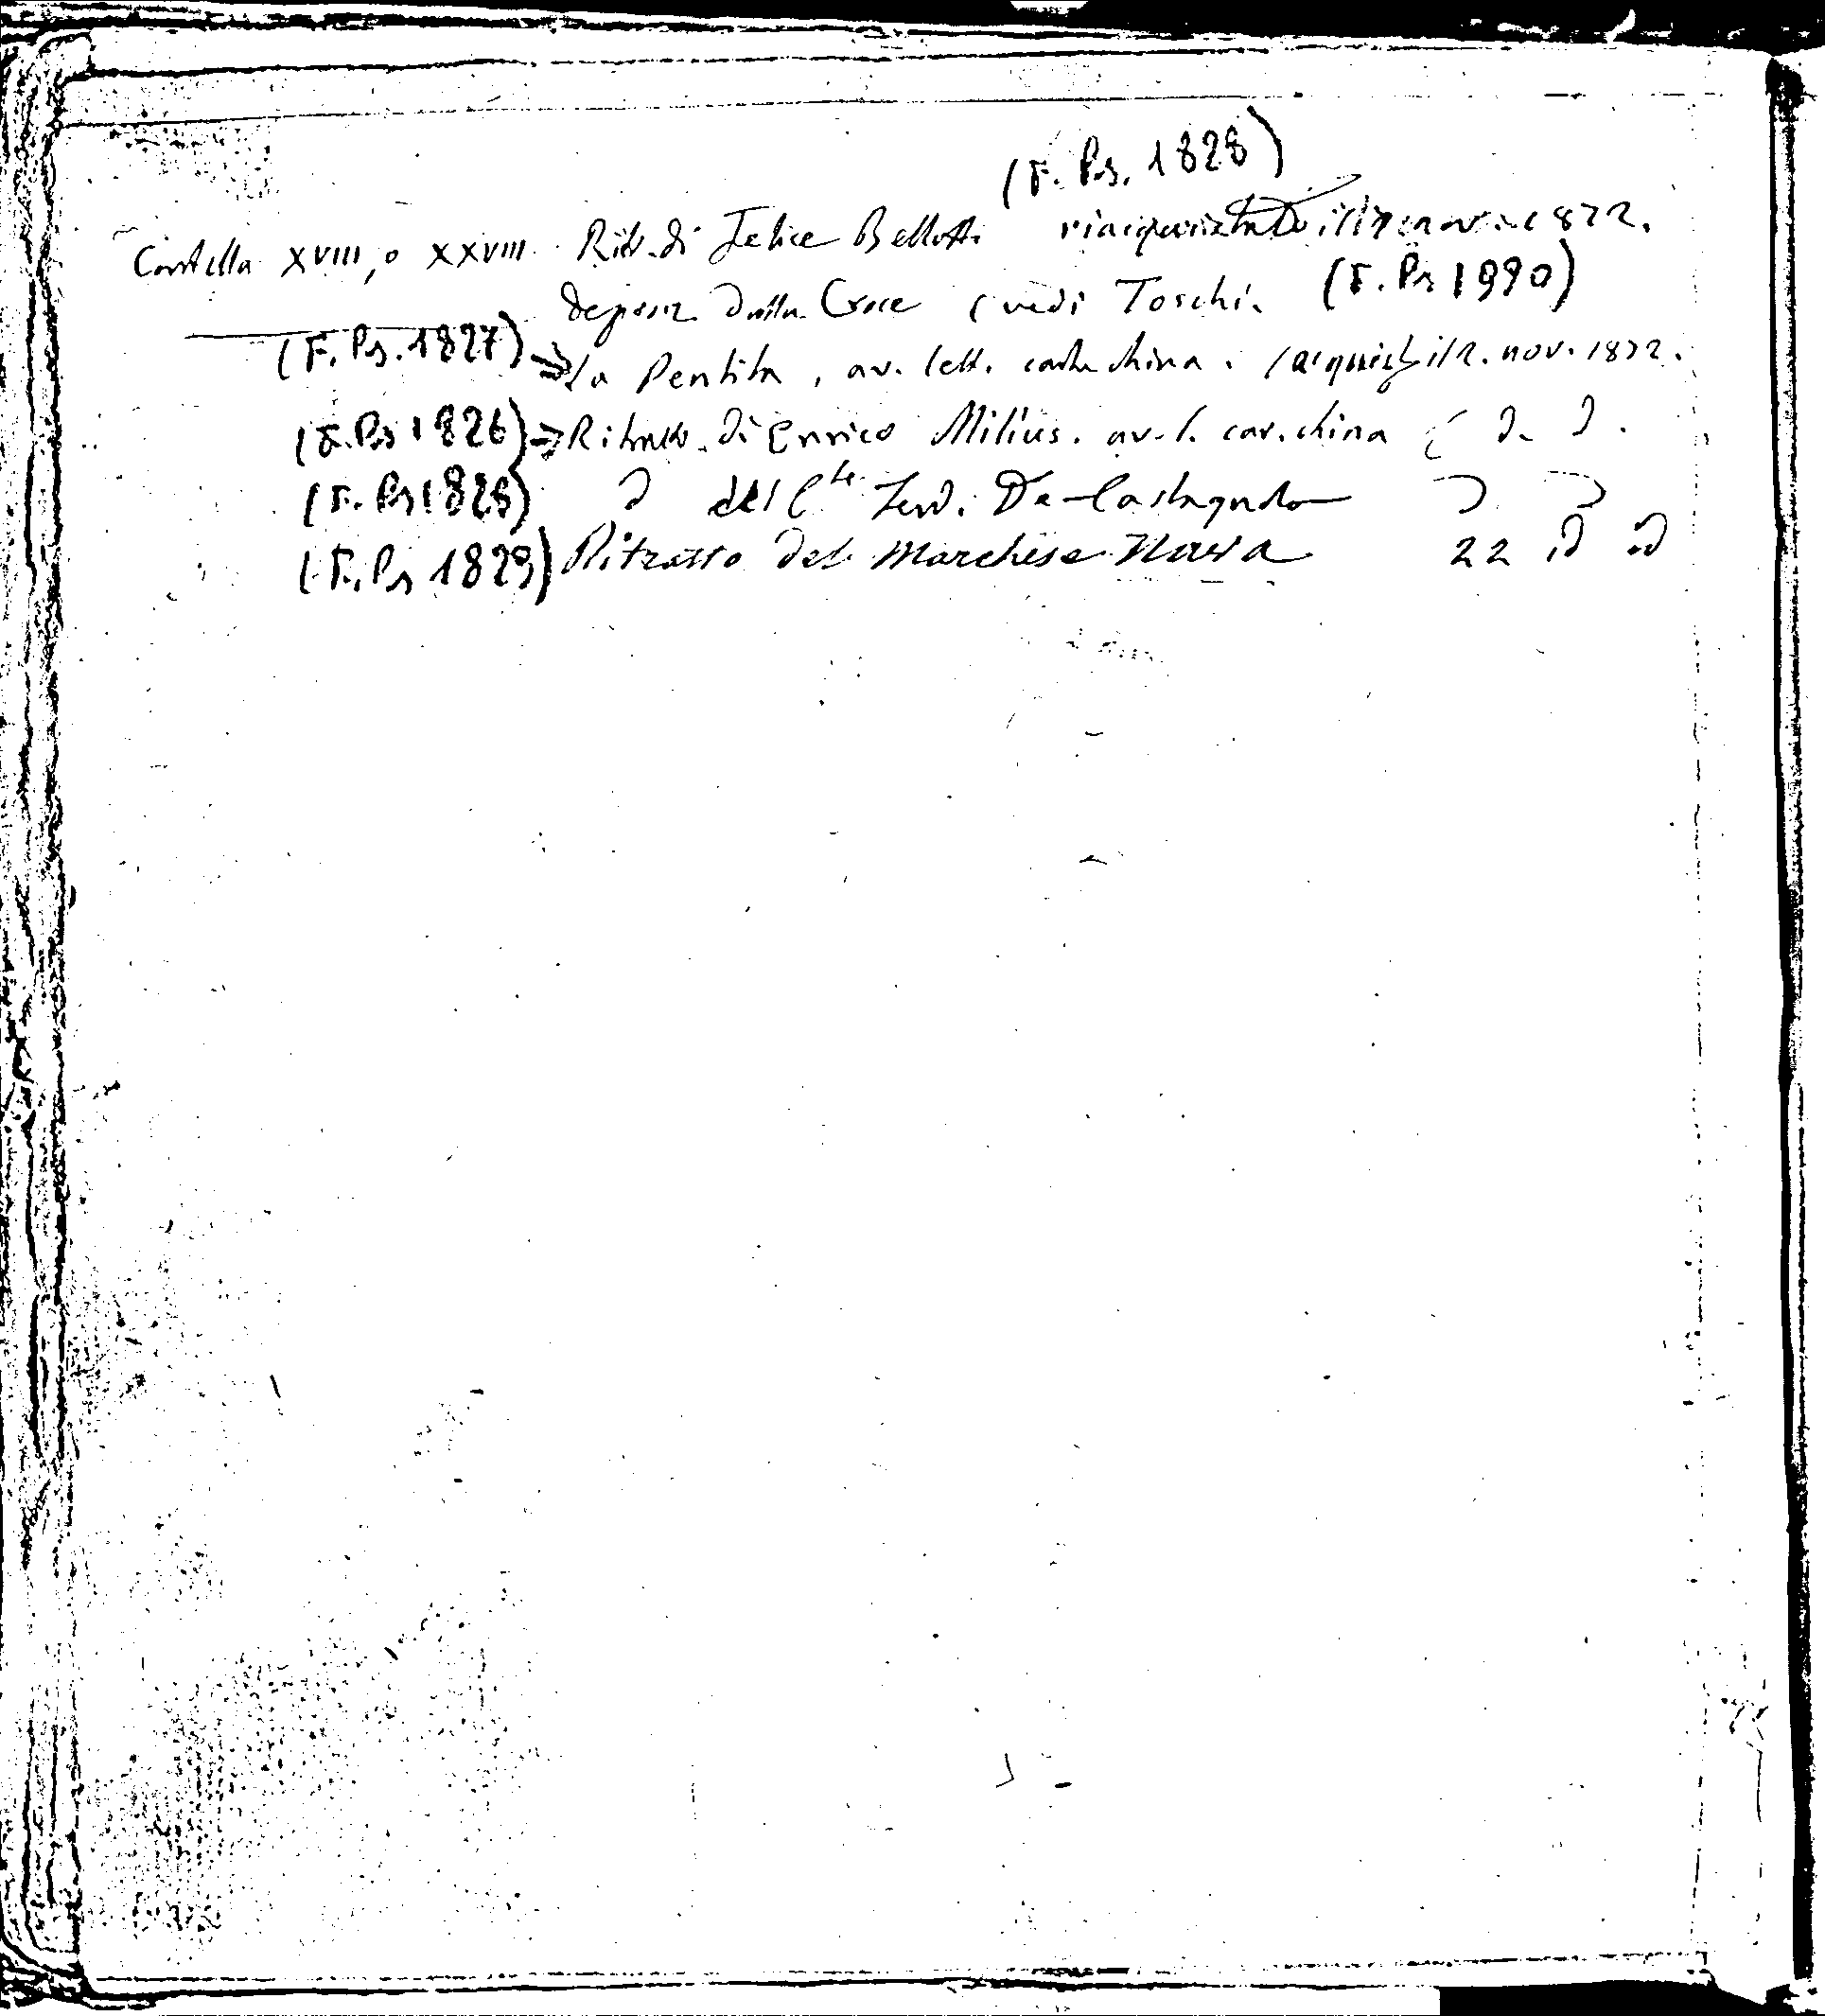 (F. Ps. 1828)
Cartella XVIII, o XXVIII. Ritr. di Felice Bellotti riacquistato il 12 nov. 1872.
Deposiz. dalla Croce (vedi Toschi. (F. Ps 1990)
(F. Ps. 1827) → La Pentita, av. lett. carta china. (acquist. il 2. nov. 1872.
(F. Ps 1826) → Ritratto di Enrico Milius. av. l. car. china ( d. d.
(F. Ps 1825) d del Cte Ferd. De-Castagnola d d
(F. Ps 1829) Ritratto del Marchese Nava 22 d d